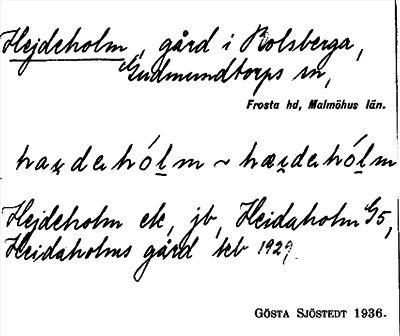 Hejdeholm, gård i Rolsberga,
Gudmundtorps sn,
Frosta hd, Malmöhus län.
hai̯dahólm ~ hæi̯dahólm
Hejdeholm ek, jb, Heidaholm G5,
Heidaholms gård teb 1929.
GÖSTA SJÖSTEDT 1936.